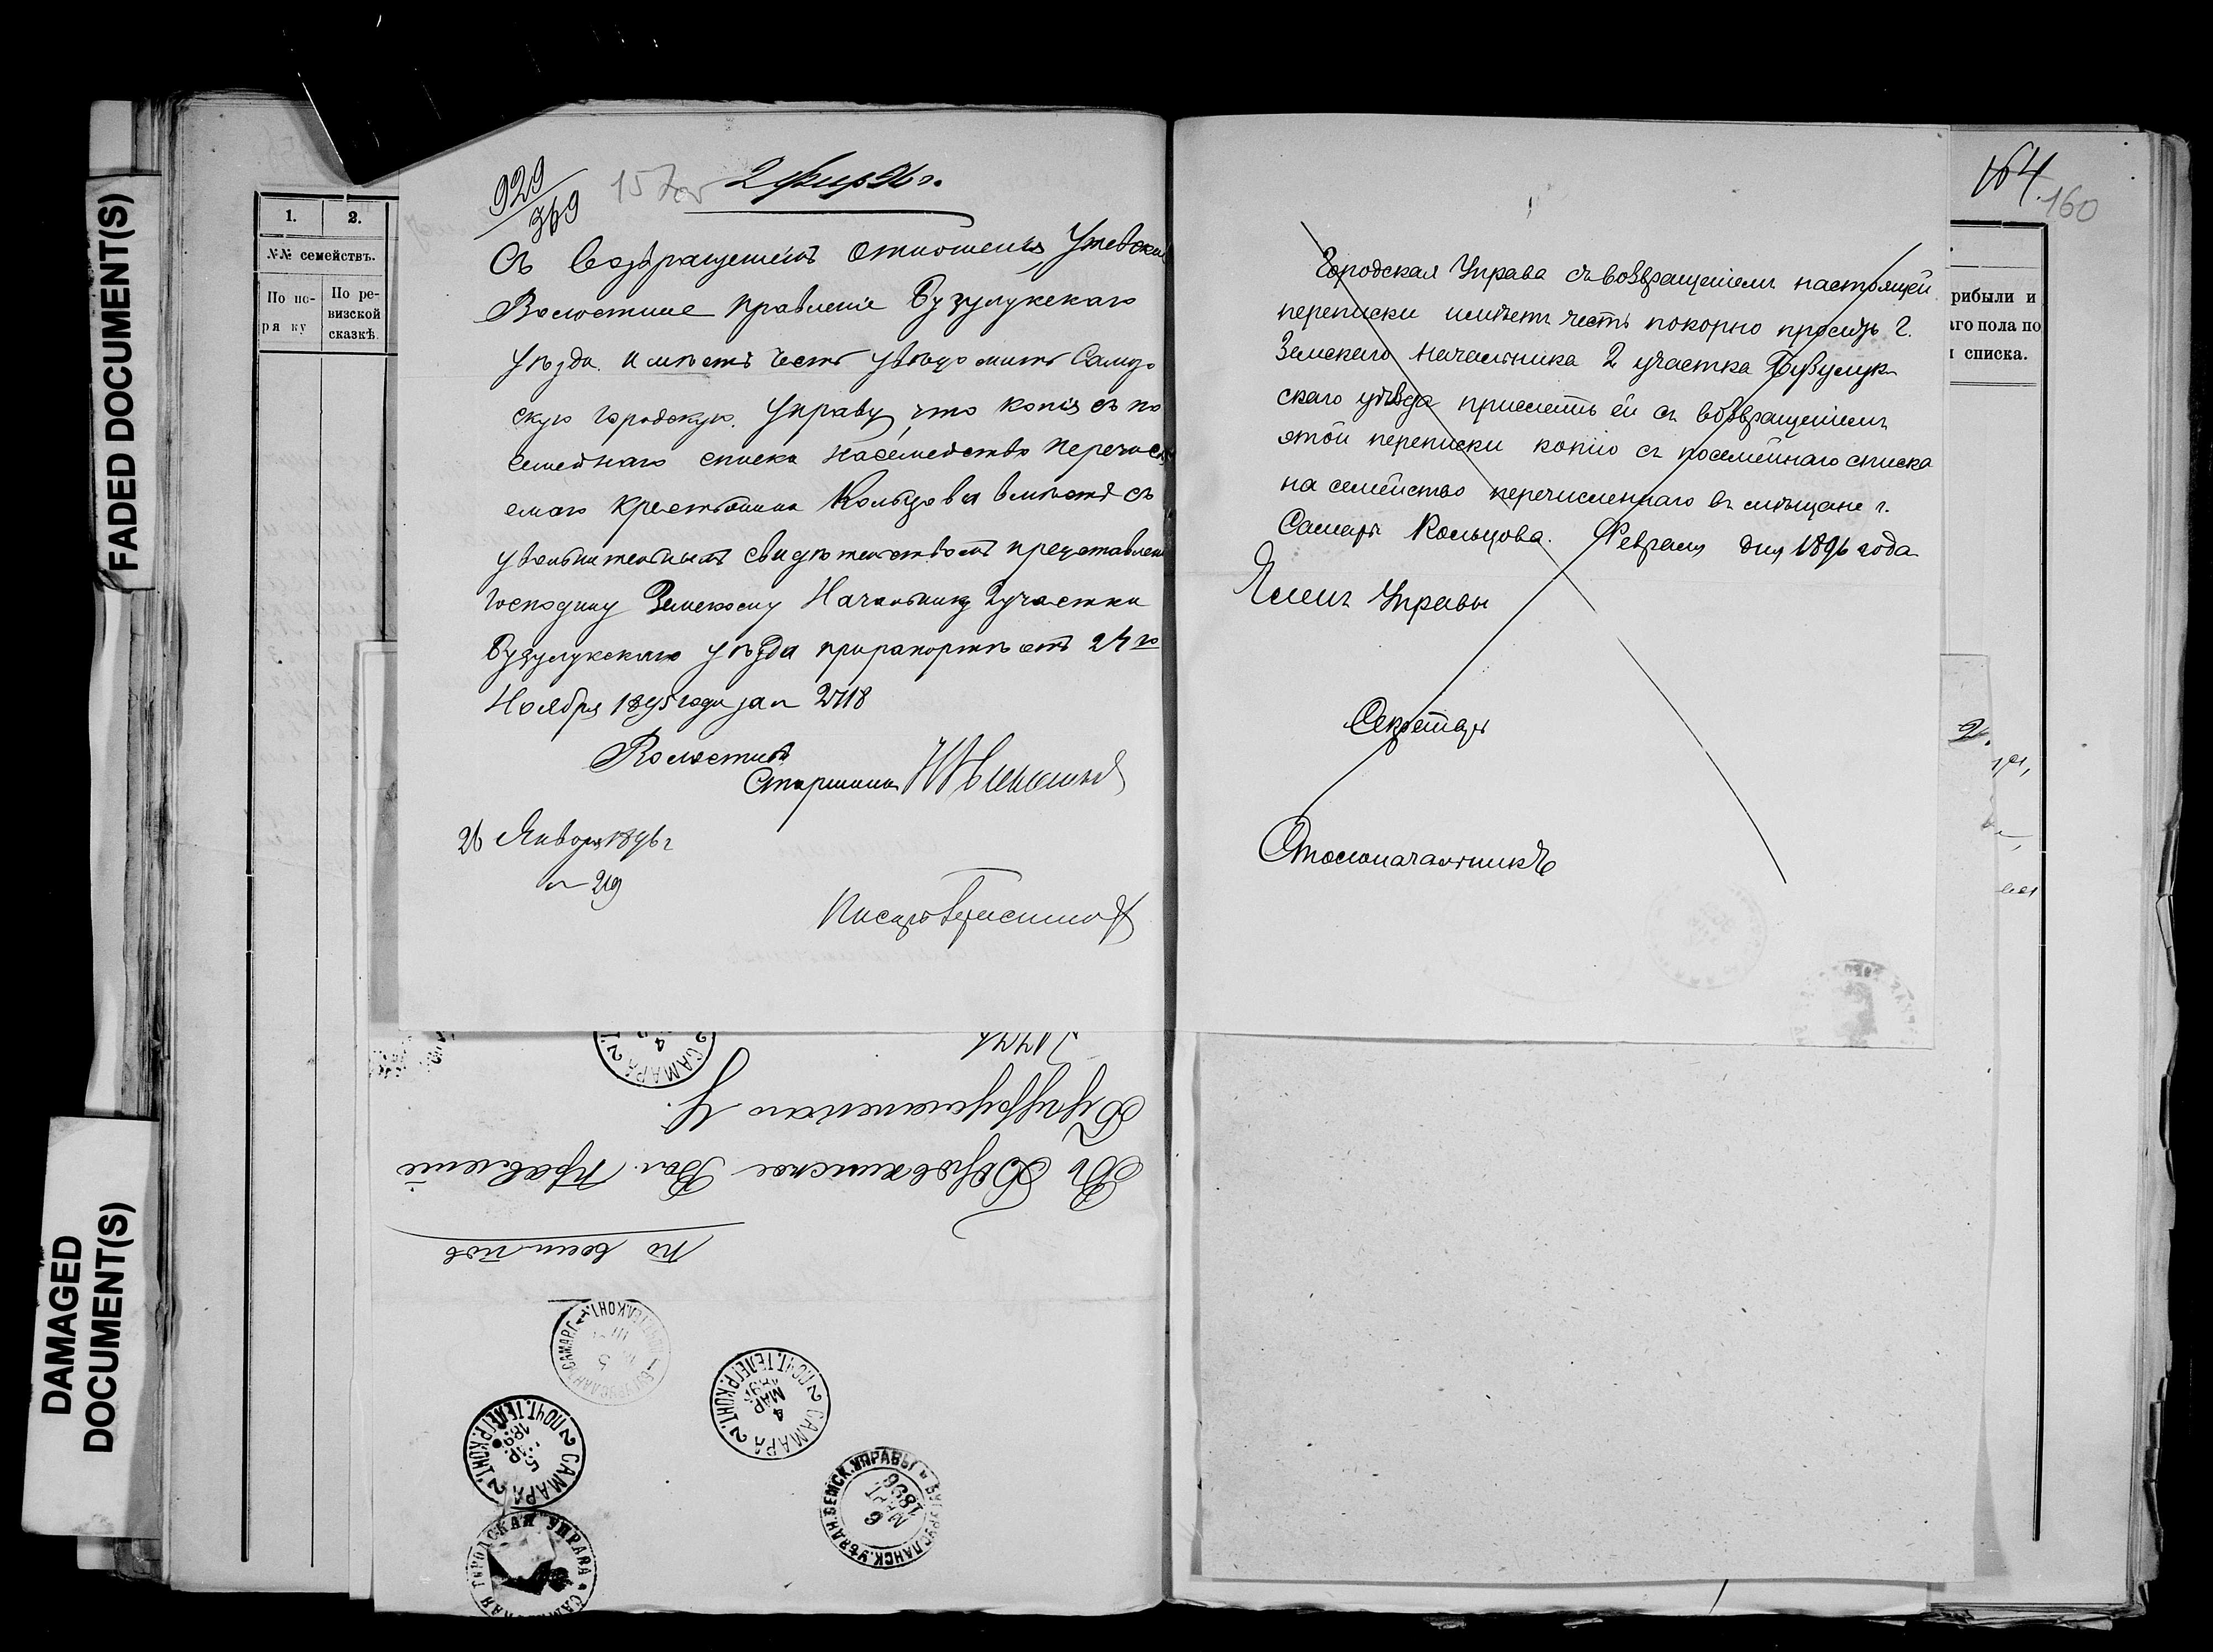 FADED DOCUMENT(S)
DAMAGED
DOCUMENT(S)
1. 2.
№№ семействъ.
По по- По ре-
ря ку визской
сказкѣ.
929/369
2 96 г.
Съ возвращеніемъ отношенія, Утевское
Волостное Правленіе Бузулукскаго
уѣзда имѣетъ честь увѣдомить Самар-
скую городскую Управу, что копія съ по
семейнаго списка на семейство перечисля
емаго крестьянина Кольцова вмѣстѣ съ
увольнительнымъ свидѣтельствомъ представлены
Господину Земскому Начальнику 2 участка
Бузулукскаго уѣзда при рапортѣ отъ 24го
Ноября 1895 года за № 2718
Волостной
Старшина
26 Января 1896 г
№ 219
Писарь
164
160
Городская Управа съ возвращеніемъ настоящей
переписки имѣетъ честь покорно просить г.
Земскаго Начальника 2 участка Бузулук-
скаго уѣзда прислать ей съ возвращеніемъ
этой переписки копію съ посемейнаго списка
на семейство перечисленнаго въ мѣщане г.
Самары Кольцова. Февраля дня 1896 года
Членъ Управы
Секретарь
Столоначальникъ
рибыли и
аго пола по
списка.
2.
САМАРА
4
Бугурусланскаго У.
Въ Вол. Правленіе
по воин. пов
2 САМАРА 2
ПОЧТ. ТЕЛЕГР. КОНТ.
4
МАР
2 САМАРА 2
ПОЧТ. ТЕЛЕГР. КОНТ.
5
БУГУРУСЛАНСК. УѢЗДН. ЗЕМСК. УПРАВЫ
6
МАРТ
1896
ГОРОДСКАЯ УПРАВА